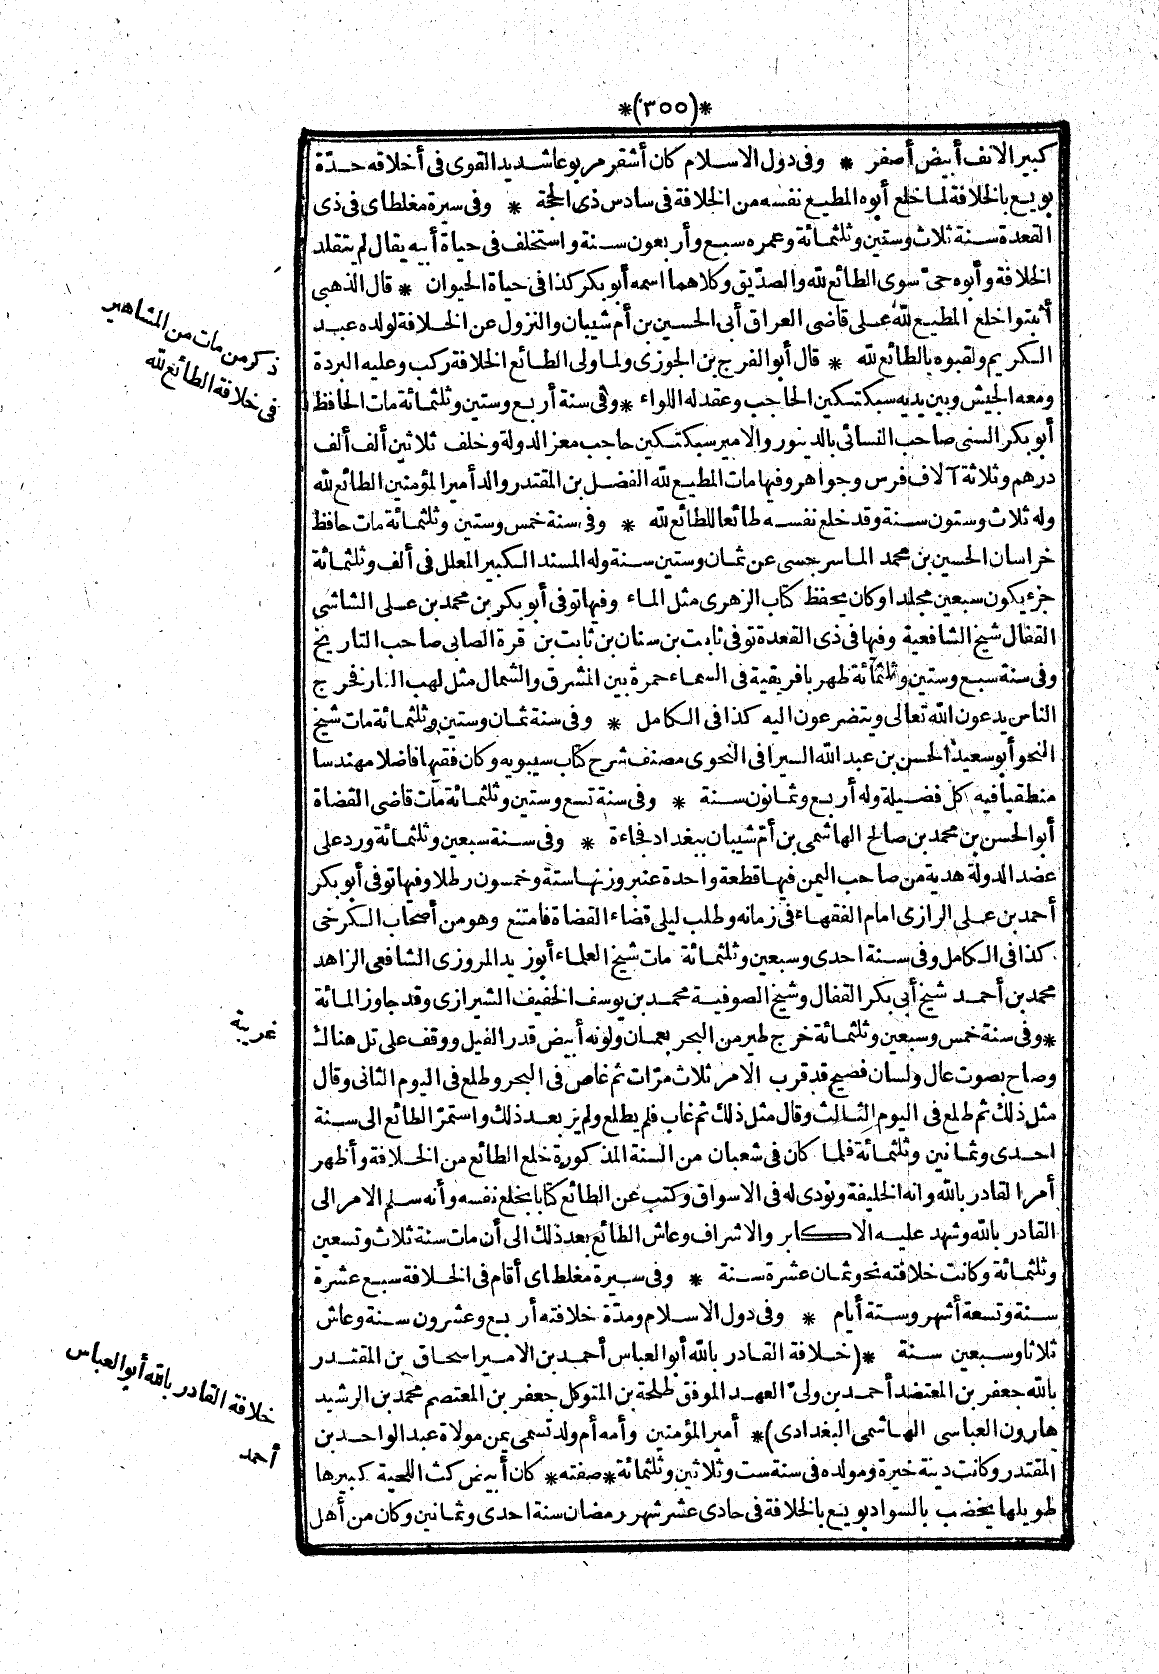 *(٣٥٥)*
كبير الانف أبيض أصفر * وفى دول الاسلام كان أشقر مربوعا شديد القوى فى أخلاقه حدّة
بويع بالخلافة لما خلع أبوه المطيع نفسه من الخلافة فى سادس ذى الحجة * وفى سيرة مغلطاى فى ذى
القعدة سنة ثلاث وستين وثلثمائة وعمره سبع وأربعون سنة واستخلف فى حياة أبيه يقال لم يتقلد
الخلافة وأبوه حىّ سوى الطائع لله والصدّيق وكلاهما اسمه أبو بكر كذا فى حياة الحيوان * قال الذهبى
أثبتوا خلع المطيع لله على قاضى العراق أبى الحسين بن أم شيبان والنزول عن الخلافة لولده عبد
الكريم ولقبوه بالطائع لله * قال أبو الفرج بن الجوزى ولما ولى الطائع الخلافة ركب وعليه البردة
ومعه الجيش وبين يديه سبكتكين الحاجب وعقد له اللواء * وفى سنة أربع وستين وثلثمائة مات الحافظ
أبو بكر السنى صاحب النسائى بالدينور والامير سبكتكين حاجب معز الدولة وخلف ثلاثين ألف ألف
درهم وثلاثة آلاف فرس وجواهر وفيها مات المطيع لله الفضل بن المقتدر والد أمير المؤمنين الطائع لله
وله ثلاث وستون سنة وقد خلع نفسه طائعا للطائع لله * وفى سنة خمس وستين وثلثمائة مات حافظ
خراسان الحسين بن محمد الماسرجسى عن ثمان وستين سنة وله المسند الكبير المعلل فى ألف وثلثمائة
جزء يكون سبعين مجلدا وكان يحفظ كتاب الزهرى مثل الماء وفيها توفى أبو بكر بن محمد بن على الشاشى
القفال شيخ الشافعية وفيها فى ذى القعدة توفى ثابت بن سنان بن ثابت بن قرة الصابى صاحب التاريخ
وفى سنة سبع وستين وثلثمائة ظهر بافريقية فى السماء حمرة بين المشرق والشمال مثل لهب النار فخرج
الناس يدعون الله تعالى ويتضرعون اليه كذا فى الكامل * وفى سنة ثمان وستين وثلثمائة مات شيخ
النحو أبو سعيد الحسن بن عبد الله السيرافى النحوى مصنف شرح كتاب سيبويه وكان فقيها فاضلا مهندسا
منطقيا فيه كل فضيلة وله أربع وثمانون سنة * وفى سنة تسع وستين وثلثمائة مات قاضى القضاة
أبو الحسن بن محمد بن صالح الهاشمى بن أمّ شيبان ببغداد فجاءة * وفى سنة سبعين وثلثمائة ورد على
عضد الدولة هدية من صاحب اليمن فيها قطعة واحدة عنبر وزنها ستة وخمسون رطلا وفيها توفى أبو بكر
أحمد بن على الرازى امام الفقهاء فى زمانه وطلب ليلى قضاء القضاة فامتنع وهو من أصحاب الكرخى
كذا فى الكامل وفى سنة احدى وسبعين وثلثمائة مات شيخ العلماء أبو زيد المروزى الشافعى الزاهد
محمد بن أحمد شيخ أبى بكر القفال وشيخ الصوفية محمد بن يوسف الخفيف الشيرازى وقد جاوز المائة
* وفى سنة خمس وسبعين وثلثمائة خرج طير من البحر بعمان ولونه أبيض قدر الفيل ووقف على تل هنالك
وصاح بصوت عال ولسان فصيح قد قرب الامر ثلاث مرّات ثم غاص فى البحر وطلع فى اليوم الثانى وقال
مثل ذلك ثم طلع فى اليوم الثالث وقال مثل ذلك ثم غاب فلم يطلع ولم ير بعد ذلك واستمرّ الطائع الى سنة
احدى وثمانين وثلثمائة فلما كان فى شعبان من السنة المذكورة خلع الطائع من الخلافة وأظهر
أمر القادر بالله وانه الخليفة ونودى له فى الاسواق وكتب عن الطائع كتابا بخلع نفسه وأنه سلم الامر الى
القادر بالله وشهد عليه الاكابر والاشراف وعاش الطائع بعد ذلك الى أن مات سنة ثلاث وتسعين
وثلثمائة وكانت خلافته نحو ثمان عشرة سنة * وفى سيرة مغلطاى أقام فى الخلافة سبع عشرة
سنة وتسعة أشهر وستة أيام * وفى دول الاسلام ومدّة خلافته أربع وعشرون سنة وعاش
ثلاثا وسبعين سنة *(خلافة القادر بالله أبو العباس أحمد بن الامير اسحاق بن المقتدر
بالله جعفر بن المعتضد أحمد بن ولىّ العهد الموفق طلحة بن المتوكل جعفر بن المعتصم محمد بن الرشيد
هارون العباسى الهاشمى البغدادى)* أمير المؤمنين وأمه أم ولد تسمى يمن مولاة عبد الواحد بن
المقتدر وكانت دينة خيرة ومولده فى سنة ست وثلاثين وثلثمائة * صفته * كان أبيض كث اللحية كبيرها
طويلها يخضب بالسواد بويع بالخلافة فى حادى عشر شهر رمضان سنة احدى وثمانين وكان من أهل
ذكر من مات من المشاهير
فى خلافة الطائع لله
غريبة
خلافة القادر بالله أبو العباس
أحمد